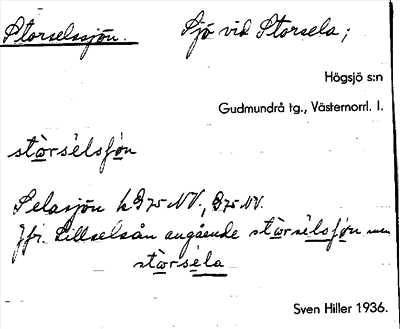 Storselssjön. Sjö vid Storsela;
Högsjö s:n
Gudmundrå tg., Västernorrl. l.
stårsèlsfön
Selasjön k G75 NV., G75 NV.
Jfr. Lillselsån angående stårsèlsfön men
stårsèla
Sven Hiller 1936.